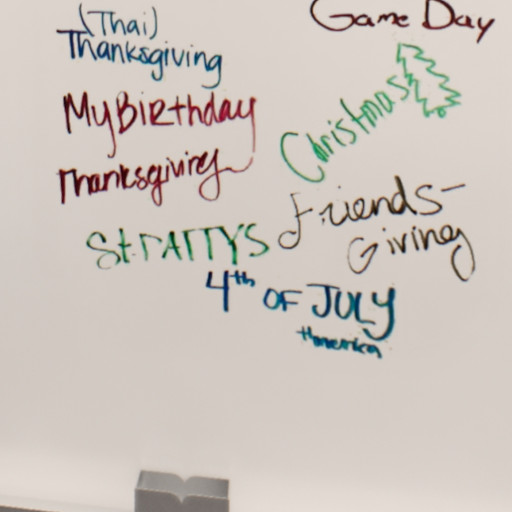 (Thai)
Thanksgiving
Game Day
My Birthday
Christmas
Thanksgiving
Friends-
Giving
St. PATTY'S
4th OF JULY
#america